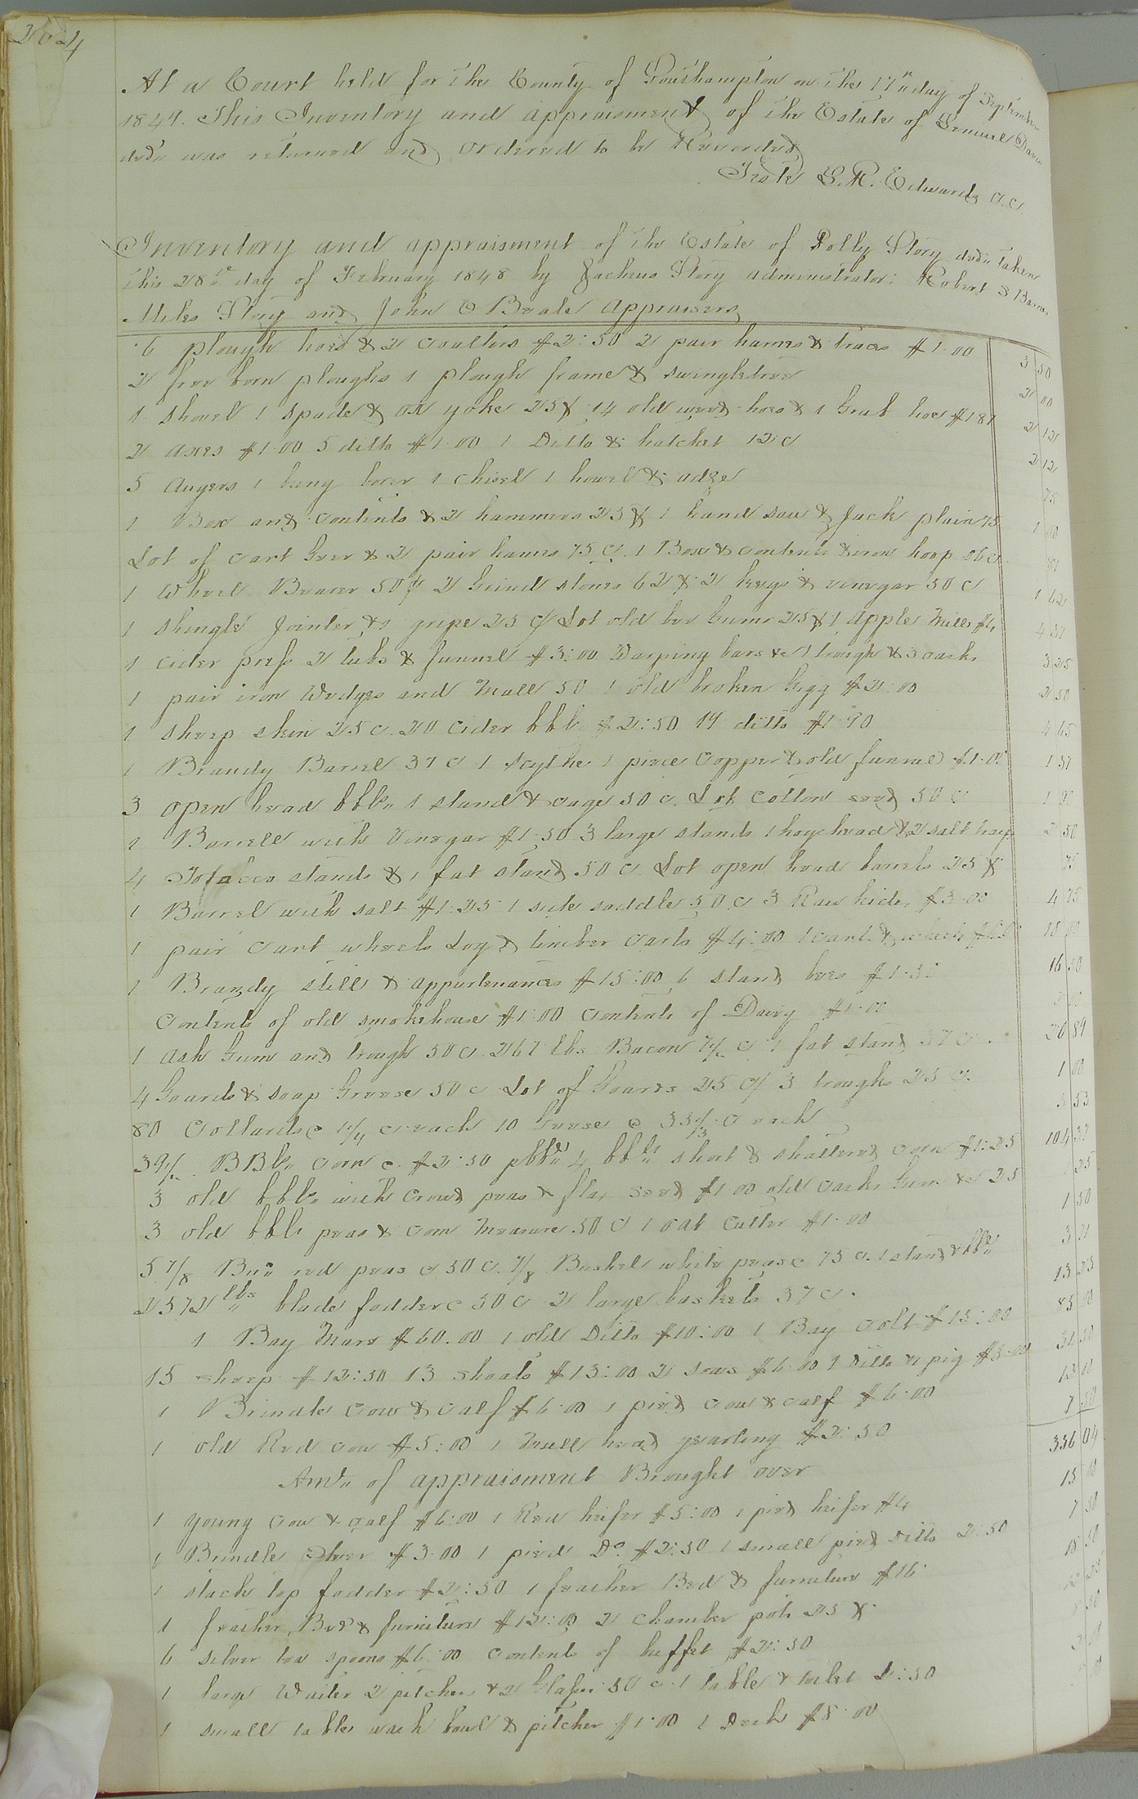 204
At a Court held for the County of Southampton on the 17th day of September
1849. This Inventory and appraisment of the Estate of
decd. was returned and ordered to be Recorded
Teste L. R. Edwards C.C.
Inventory and appraisment of the Estate of Polly Story decd. taken
this 28th day of February 1848 by Zacheus Story administrator: Robert S
Miles Story and John E Beale appraisers
6 plough hoes & 2 coulters $2:50 2 pair hames & traces $1.00 3 50
2 free born ploughs 1 plough frame & swingletree 2 00
1 shovel 1 spade & ox yoke 25 ¢ 14 old weed hoes & 1 Grub hoe $1 87 2 12
2 axes $1.00 5 ditto $1.00 1 Ditto & hatchet 12 c 2 12
5 Augers 1 bung borer 1 chisel 1 howel & adze 75
1 Box and contents & 2 hammers 25 ¢ 1 hand saw & Jack plain 75 1 00
Lot of cart Geer & 2 pair hames 75 c. 1 Box & contents & iron hoop 6 c
1 Wheel Barrow 50 ¢ 2 Grind stones 62 ¢ 2 kegs & vinegar 50 c 1 62
1 shingle Jointer & gripe 25 ¢ Lot old bee Gums 25 ¢ 1 apple Mill $4 4 50
1 cider press 2 tubs & funnel $3:00 Warping bars & 1 trough & 3 casks 3 25
1 pair iron Wedges and Maul 50 1 old broken Gigg $2:00 2 50
1 sheep skin 25 c. 20 cider bbls $2:50 19 ditto $1.90 4 65
1 Brandy Barrel 37 c 1 scythe 1 piece copper & old funnel $1.00 1 37
3 open head bbls. 1 stand & cage 50 c. Lot cotton seed 50 c 1 00
1 Barrell with Vinegar $1.50 3 large stands 1 hogshead & 2 salt trays 2 50
4 Tobacco stands & 1 fat stand 50 c Lot open head barrels 25 ¢ 75
1 Barrel with salt $1.25 1 side saddle 50 c 3 Raw hides $3.00 4 75
1 pair cart wheels Log & timber carts $4:00 1 cart & wheels 18
1 Brandy still & appurtenances $15:00 6 stand bees $1.50 16 50
Contents of old smokehouse $1:00 contents of Dairy $1:00
1 ash Gum and trough 50 c. 267 lbs Bacon 7½ c 1 fat stand 37 c 20 89
4 Gourds & soap Grease 50 c Lot of Gourds 25 c/ 3 troughs 25 c. 1 00
80 Collards c 1/4 c each 10 Geese c 33⅓ c each 53
39½ BBls. corn c. $2:50 pbbl. 4 bbls. short & shattered corn $1:25 104
3 old bbls. with crowd peas & flax seed $1 00 old casks Gum & 25 25
3 old bbls peas & corn Measure 50 c 1 oat cutter $1.00 1 50
5 7/8 Bus. red peas c 50 c. 7/8 Bushel white peas c 75 c. 1 stand & bbl. 3
2572 lbs. blade fodder c 50 c 2 large baskets 37 c. 13 23
1 Bay Mare $60.00 1 old Ditto $10:00 1 Bay Colt $15:00 85 00
15 sheep $12:50 13 shoats $13:00 2 sows $6.00 1 Ditto & pig $3.00
1 Brindle cow & calf $6:00 1 pied cow & calf $6:00 12
1 old Red cow $5:00 1 mull head yearling $2:50 7 50
Amt. of appraisment Brought over 336 04
1 young cow & calf $6:00 1 Red heifer $5:00 1 pied heifer $4 15 00
1 Brindle steer $3.00 1 pied Do. $2:50 1 small pied ditto 2:50 7 50
1 stack top fodder $2:50 1 feather Bed & furniture $16 18 50
1 feather Bed & furniture $12:00 2 chamber pots 25 ¢ 12 25
6 silver tea spoons $6:00 contents of buffet $2:50 8 50
1 large Waiter 2 pitchers & 2 Glasses 50 c. 1 table & toilet 2:50
1 small table wash bowl & pitcher $1:00 1 Desk $8.00